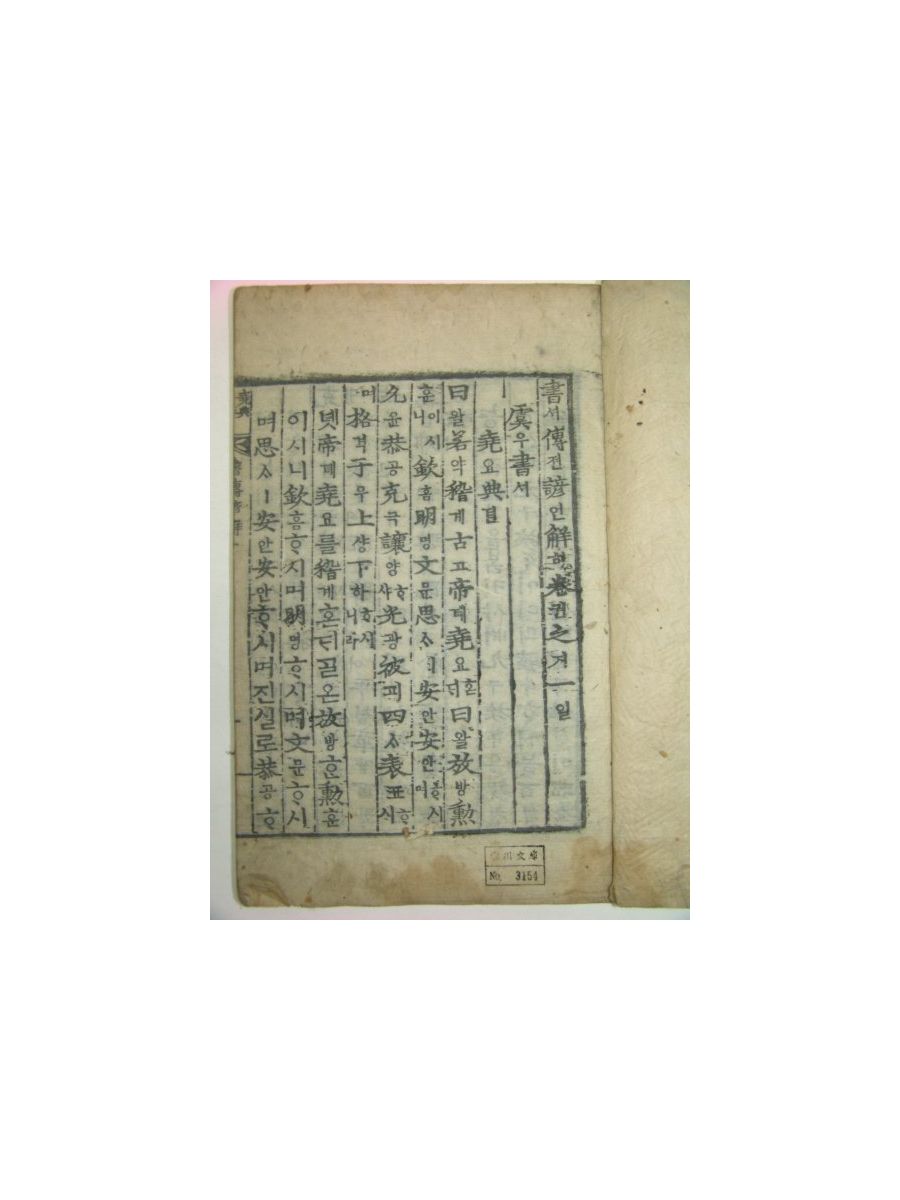 書서傳젼諺언解ᄒᆡ卷권之지一일
虞우書서
堯요典뎐
曰왈若약稽계古고帝뎨堯요혼ᄃᆡ曰왈放방勳
훈이시니欽흠明명文문思ᄉᆞㅣ安안安안ᄒᆞ시며
允윤恭공克극讓양ᄒᆞ샤光광被피四ᄉᆞ表표ᄒᆞ시
며格격于우上샹下하ᄒᆞ시니라
녯帝뎨堯요를稽계혼ᄃᆡ ᄀᆞᆯ온放방ᄒᆞᆫ勳훈
이시니欽흠ᄒᆞ시며明명ᄒᆞ시며文문ᄒᆞ시
며思ᄉᆞㅣ安안安안ᄒᆞ시며진실로恭공ᄒᆞ
堯典
書傳諺解
川文庫
No. 3154